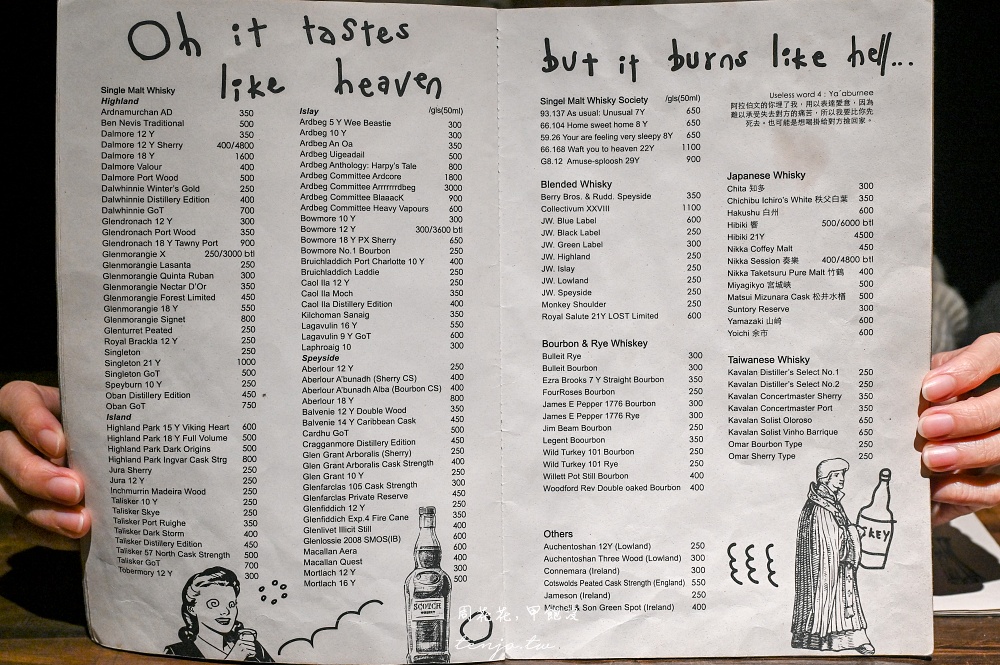 Oh it tastes
like heaven
Single Malt Whisky
Highland
Ardnamurchan AD 350
Ben Nevis Traditional 500
Dalmore 12 Y 350
Dalmore 12 Y Sherry 400/4800
Dalmore 18 Y 1600
Dalmore Valour 400
Dalmore Port Wood 500
Dalwhinnie Winter's Gold 250
Dalwhinnie Distillery Edition 400
Dalwhinnie GoT 700
Glendronach 12 Y 300
Glendronach Port Wood 350
Glendronach 18 Y Tawny Port 900
Glenmorangie X 250/3000 btl
Glenmorangie Lasanta 250
Glenmorangie Quinta Ruban 300
Glenmorangie Nectar D'Or 350
Glenmorangie Forest Limited 450
Glenmorangie 18 Y 550
Glenmorangie Signet 800
Glenturret Peated 250
Royal Brackla 12 Y 250
Singleton 250
Singleton 21 Y 1000
Singleton GoT 500
Speyburn 10 Y 250
Oban Distillery Edition 450
Oban GoT 750
Island
Highland Park 15 Y Viking Heart 600
Highland Park 18 Y Full Volume 500
Highland Park Dark Origins 500
Highland Park Ingvar Cask Strg 800
Jura Sherry 250
Jura 12 Y 250
Inchmurrin Madeira Wood 250
Talisker 10 Y 250
Talisker Skye 250
Talisker Port Ruighe 350
Talisker Dark Storm 400
Talisker Distillery Edition 450
Talisker 57 North Cask Strength 500
Talisker GoT 700
Tobermory 12 Y 300
Islay /gls(50ml)
Ardbeg 5 Y Wee Beastie 300
Ardbeg 10 Y 300
Ardbeg An Oa 350
Ardbeg Uigeadail 500
Ardbeg Anthology: Harpy's Tale 800
Ardbeg Committee Ardcore 1800
Ardbeg Committee Arrrrrrrdbeg 3000
Ardbeg Committee BlaaacK 900
Ardbeg Committee Heavy Vapours 600
Bowmore 10 Y 300
Bowmore 12 Y 300/3600 btl
Bowmore 18 Y PX Sherry 650
Bowmore No.1 Bourbon 250
Bruichladdich Port Charlotte 10 Y 400
Bruichladdich Laddie 250
Caol Ila 12 Y 250
Caol Ila Moch 250
Caol Ila Distillery Edition 400
Kilchoman Sanaig 350
Lagavulin 16 Y 550
Lagavulin 9 Y GoT 600
Laphroaig 10 300
Speyside
Aberlour 12 Y 250
Aberlour A'bunadh (Sherry CS) 400
Aberlour A'bunadh Alba (Bourbon CS) 400
Aberlour 18 Y 800
Balvenie 12 Y Double Wood 350
Balvenie 14 Y Caribbean Cask 350
Cardhu GoT 500
Cragganmore Distillery Edition 450
Glen Grant Arboralis (Sherry) 250
Glen Grant Arboralis Cask Strength 400
Glen Grant 10 Y 250
Glenfarclas 105 Cask Strength 300
Glenfarclas Private Reserve 450
Glenfiddich 12 Y 250
Glenfiddich Exp.4 Fire Cane 350
Glenlivet Illicit Still 400
Glenlossie 2008 SMOS(IB) 600
Macallan Aera 600
Macallan Quest 400
Mortlach 12 Y 400
Mortlach 16 Y 500
SCOTCH
but it burns like hell...
Singel Malt Whisky Society /gls(50ml)
93.137 As usual: Unusual 7Y 650
66.104 Home sweet home 8 Y 650
59.26 Your are feeling very sleepy 8Y 650
66.168 Waft you to heaven 22Y 1100
G8.12 Amuse-sploosh 29Y 900
Blended Whisky
Berry Bros. & Rudd. Speyside 350
Collectivum XXVIII 1100
JW. Blue Label 600
JW. Black Label 250
JW. Green Label 300
JW. Highland 250
JW. Islay 250
JW. Lowland 250
JW. Speyside 250
Monkey Shoulder 250
Royal Salute 21Y LOST Limited 600
Bourbon & Rye Whiskey
Bulleit Rye 300
Bulleit Bourbon 300
Ezra Brooks 7 Y Straight Bourbon 350
FourRoses Bourbon 250
James E Pepper 1776 Bourbon 300
James E Pepper 1776 Rye 300
Jim Beam Bourbon 250
Legent Boourbon 350
Wild Turkey 101 Bourbon 250
Wild Turkey 101 Rye 250
Willett Pot Still Bourbon 400
Woodford Rev Double oaked Bourbon 400
Others
Auchentoshan 12Y (Lowland) 250
Auchentoshan Three Wood (Lowland) 300
Connemara (Ireland) 300
Cotswolds Peated Cask Strength (England) 550
Jameson (Ireland) 250
Mitchell & Son Green Spot (Ireland) 400
Useless word 4 : Ya'aburnee
阿拉伯文的你埋了我，用以表達愛意，因為
難以承受失去對方的痛苦，所以我要比你先
死去。也可能是想嘴掛給對方撿回家。
Japanese Whisky
Chita 知多 300
Chichibu Ichiro's White 秩父白葉 350
Hakushu 白州 600
Hibiki 響 500/6000 btl
Hibiki 21Y 4500
Nikka Coffey Malt 450
Nikka Session 奏樂 400/4800 btl
Nikka Taketsuru Pure Malt 竹鶴 400
Miyagikyo 宮城峽 500
Matsui Mizunara Cask 松井水楢 500
Suntory Reserve 300
Yamazaki 山崎 600
Yoichi 余市 600
Taiwanese Whisky
Kavalan Distiller's Select No.1 250
Kavalan Distiller's Select No.2 250
Kavalan Concertmaster Sherry 350
Kavalan Concertmaster Port 350
Kavalan Solist Oloroso 650
Kavalan Solist Vinho Barrique 650
Omar Bourbon Type 250
Omar Sherry Type 250
KEY
周花花，甲飽沒
tenjo.tw